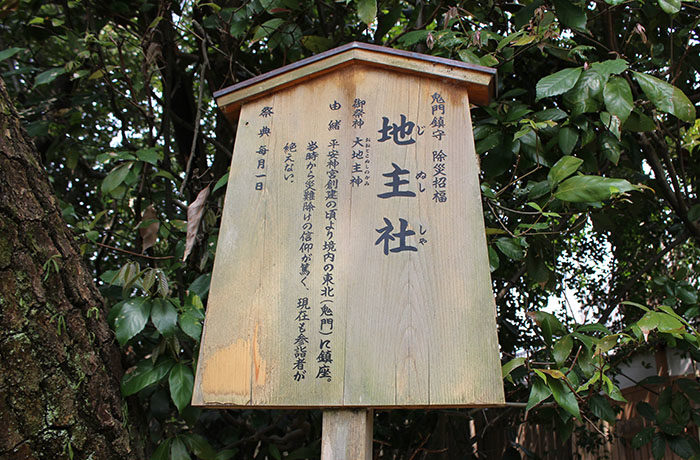 鬼門鎮守 除災招福
地主社
じぬししゃ
御祭神 大地主神
おおとこぬしのかみ
由緒 平安神宮創建の頃より境内の東北(鬼門)に鎮座。
当時から災難除けの信仰が篤く、現在も参詣者が
絶えない。
祭典 毎月一日